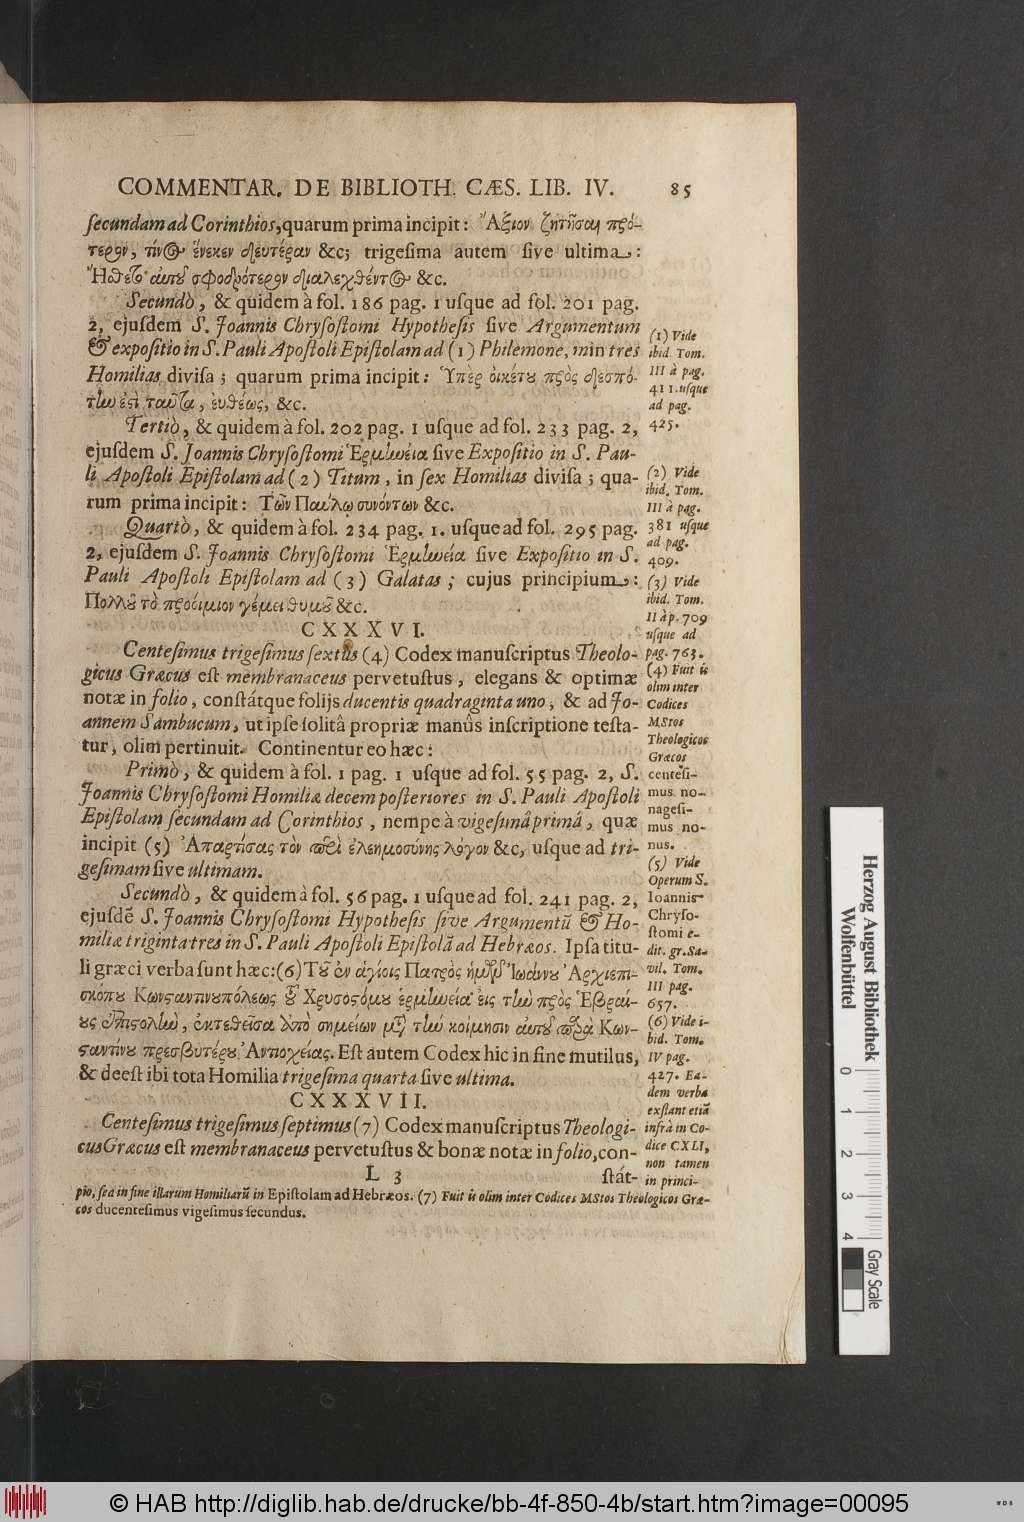 COMMENTAR. DE BIBLIOTH. CÆS. LIB. IV. 85
ſecundam ad Corinthios, quarum prima incipit: Ἄξιον ζητῆσαι πρό-
τερον, τίν༷ος ἕνεκεν δευτέραν &c; trigeſima autem ſive ultima:
Ἤσθετο αὐτοῦ σφοδρότερον διαλεχθέντος &c.
Secundò, & quidem à fol. 186 pag. 1 uſque ad fol. 201 pag.
2, ejuſdem S. Joannis Chryſoſtomi Hypotheſis ſive Argumentum
& expoſitio in S. Pauli Apoſtoli Epiſtolam ad (1) Philemone, in tres
Homilias diviſa; quarum prima incipit: Ὑπὲρ οἰκέτου πρὸς δεσπό-
την ἐστὶ ταῦτα, εὐθέως, &c.
Tertiò, & quidem à fol. 202 pag. 1 uſque ad fol. 233 pag. 2,
ejuſdem S. Joannis Chryſoſtomi Ἑρμηνεία ſive Expoſitio in S. Pau-
li Apoſtoli Epiſtolam ad (2) Titum, in ſex Homilias diviſa; qua-
rum prima incipit: Τῶν Παύλῳ συνόντων &c.
Quartò, & quidem à fol. 234 pag. 1. uſque ad fol. 295 pag.
2, ejuſdem S. Joannis Chryſoſtomi Ἑρμηνεία ſive Expoſitio in S.
Pauli Apoſtoli Epiſtolam ad (3) Galatas; cujus principium:
Πολλοῦ τὸ προοίμιον γέμει θυμοῦ &c.
CXXXVI.
Centeſimus trigeſimus ſextus (4) Codex manuſcriptus Theolo-
gicus Græcus eſt membranaceus pervetuſtus, elegans & optimæ
notæ in folio, conſtátque folijs ducentis quadraginta uno, & ad Jo-
annem Sambucum, ut ipſe ſolitâ propriæ manûs inſcriptione teſta-
tur, olim pertinuit. Continentur eo hæc:
Primò, & quidem à fol. 1 pag. 1 uſque ad fol. 55 pag. 2, S.
Joannis Chryſoſtomi Homiliæ decem poſteriores in S. Pauli Apoſtoli
Epiſtolam ſecundam ad Corinthios, nempe à vigeſimâ primâ, quæ
incipit (5) Ἀπαρτήσας τὸν περὶ ἐλεημοσύνης λόγον &c, uſque ad tri-
geſimam ſive ultimam.
Secundò, & quidem à fol. 56 pag. 1 uſque ad fol. 241 pag. 2,
ejuſdē S. Joannis Chryſoſtomi Hypotheſis ſive Argumentū & Ho-
miliæ triginta tres in S. Pauli Apoſtoli Epiſtolā ad Hebræos. Ipſa titu-
li græci verba ſunt hæc: (6) Τοῦ ἐν ἁγίοις Πατρὸς ἡμῶν Ἰωάννου Ἀρχιεπι-
σκόπου Κωνσταντινουπόλεως τοῦ Χρυσοστόμου ἑρμηνεία εἰς τὴν πρὸς Ἑβραί-
ους ἐπιστολὴν, ἐκτεθεῖσα ἀπὸ σημείων μετὰ τὴν κοίμησιν αὐτοῦ παρὰ Κων-
σταντίνου πρεσβυτέρου Ἀντιοχείας. Eſt autem Codex hic in fine mutilus,
& deeſt ibi tota Homilia trigeſima quarta ſive ultima.
CXXXVII.
Centeſimus trigeſimus ſeptimus (7) Codex manuſcriptus Theologi-
cus Græcus eſt membranaceus pervetuſtus & bonæ notæ in folio, con-
L 3 ſtát-
(1) Vide
ibid. Tom.
III à pag.
411. uſque
ad pag.
425.
(2) Vide
ibid. Tom.
III à pag.
381 uſque
ad pag.
409.
(3) Vide
ibid. Tom.
II à p. 709
uſque ad
pag. 763.
(4) Fuit is
olim inter
Codices
MStos
Theologicos
Græcos
centeſi-
mus no-
nageſi-
mus no-
nus.
(5) Vide
Operum S.
Ioannis
Chryſo-
ſtomi e-
dit. gr. Sa-
vil. Tom.
III pag.
657.
(6) Vide i-
bid. Tom.
IV pag.
427. Ea-
dem verba
exſtant etiā
infrà in Co-
dice CXLI,
non tamen
in princi-
pio, ſed in fine illarum Homiliarū in Epiſtolam ad Hebræos. (7) Fuit is olim inter Codices MStos Theologicos Græ-
cos ducenteſimus vigeſimus ſecundus.
Herzog August Bibliothek
Wolfenbüttel
0 1 2 3 4
Gray Scale
© HAB http://diglib.hab.de/drucke/bb-4f-850-4b/start.htm?image=00095